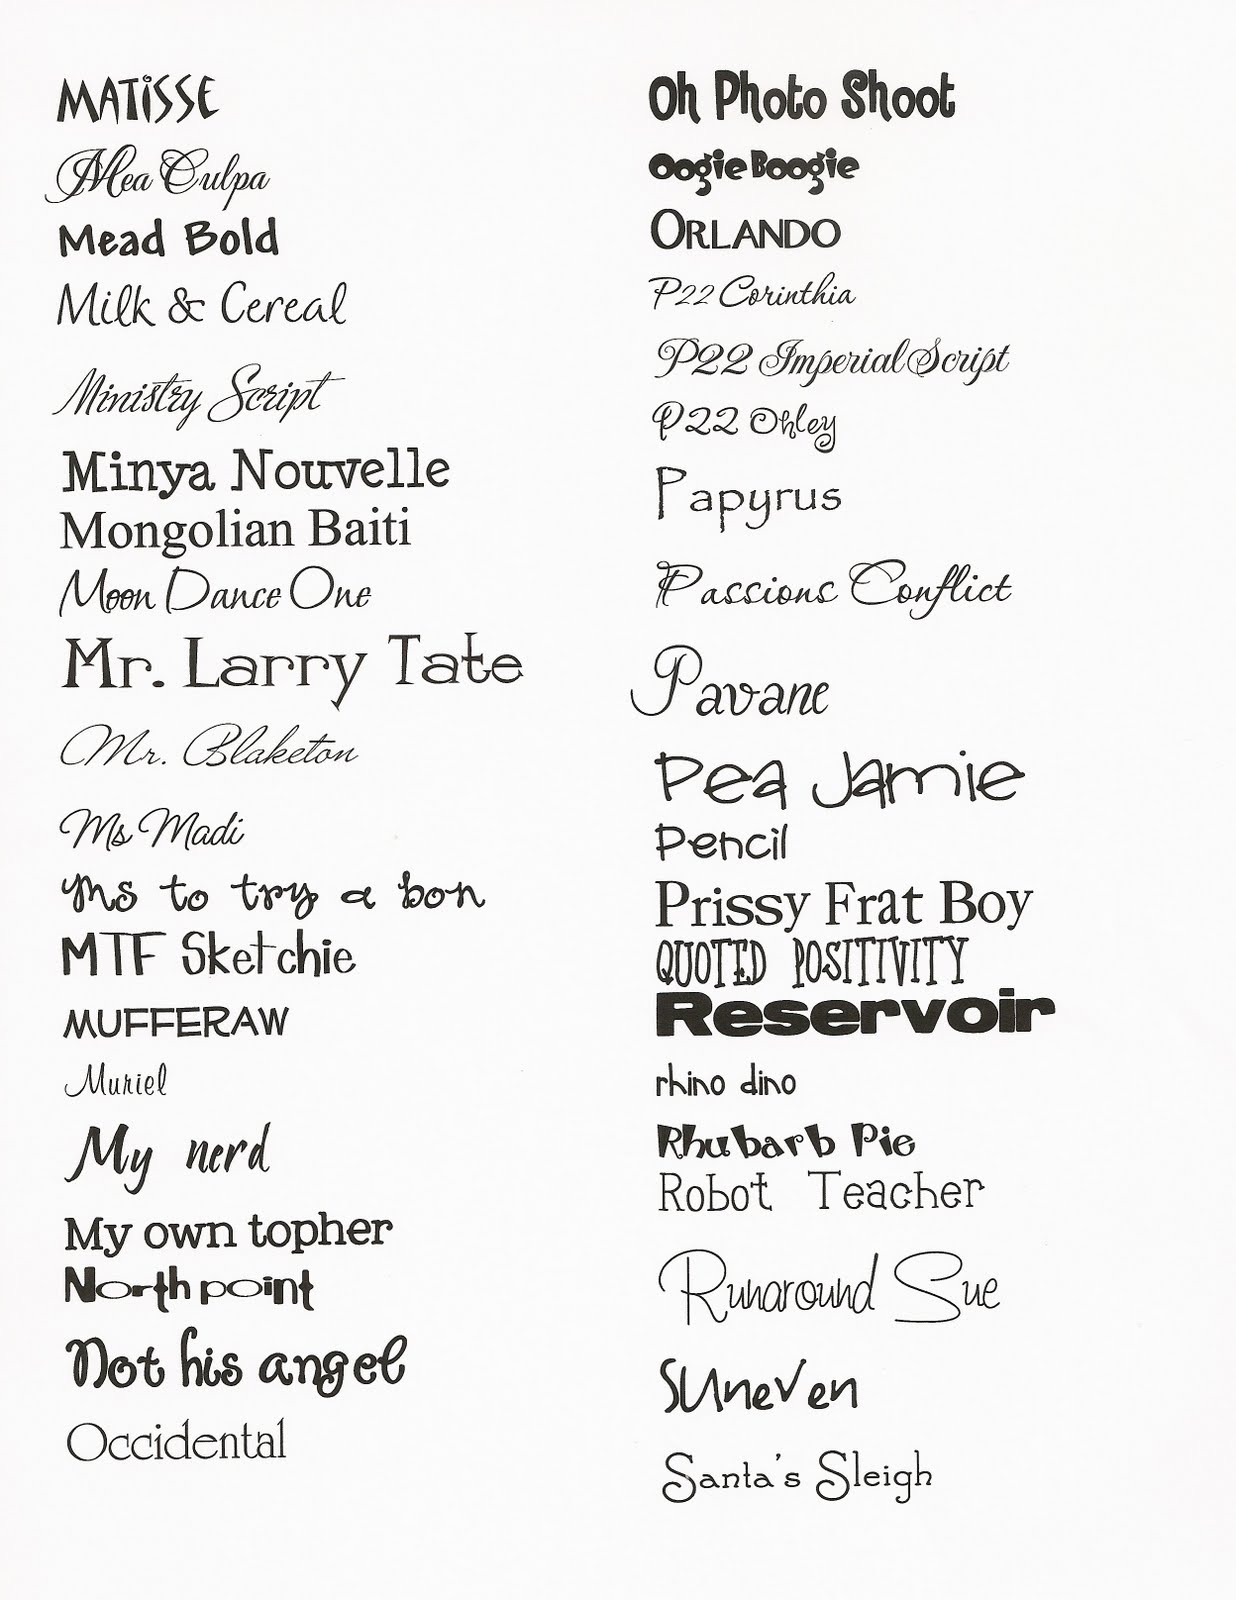 MATiSSE
Mea Culpa
Mead Bold
Milk & Cereal
Ministry Script
Minya Nouvelle
Mongolian Baiti
Moon Dance One
Mr. Larry Tate
Mr. Blaketon
Ms Madi
Ms to try a bon
MTF Sketchie
MUFFERAW
Muriel
My nerd
My own topher
North point
Not his angel
Occidental
Oh Photo Shoot
Oogie Boogie
ORLANDO
P22 Corinthia
P22 Imperial Script
P22 Ohley
Papyrus
Passions Conflict
Pavane
Pea Jamie
Pencil
Prissy Frat Boy
QUOTED POSITIVITY
Reservoir
rhino dino
Rhubarb Pie
Robot Teacher
Runaround Sue
SUneven
Santa's Sleigh